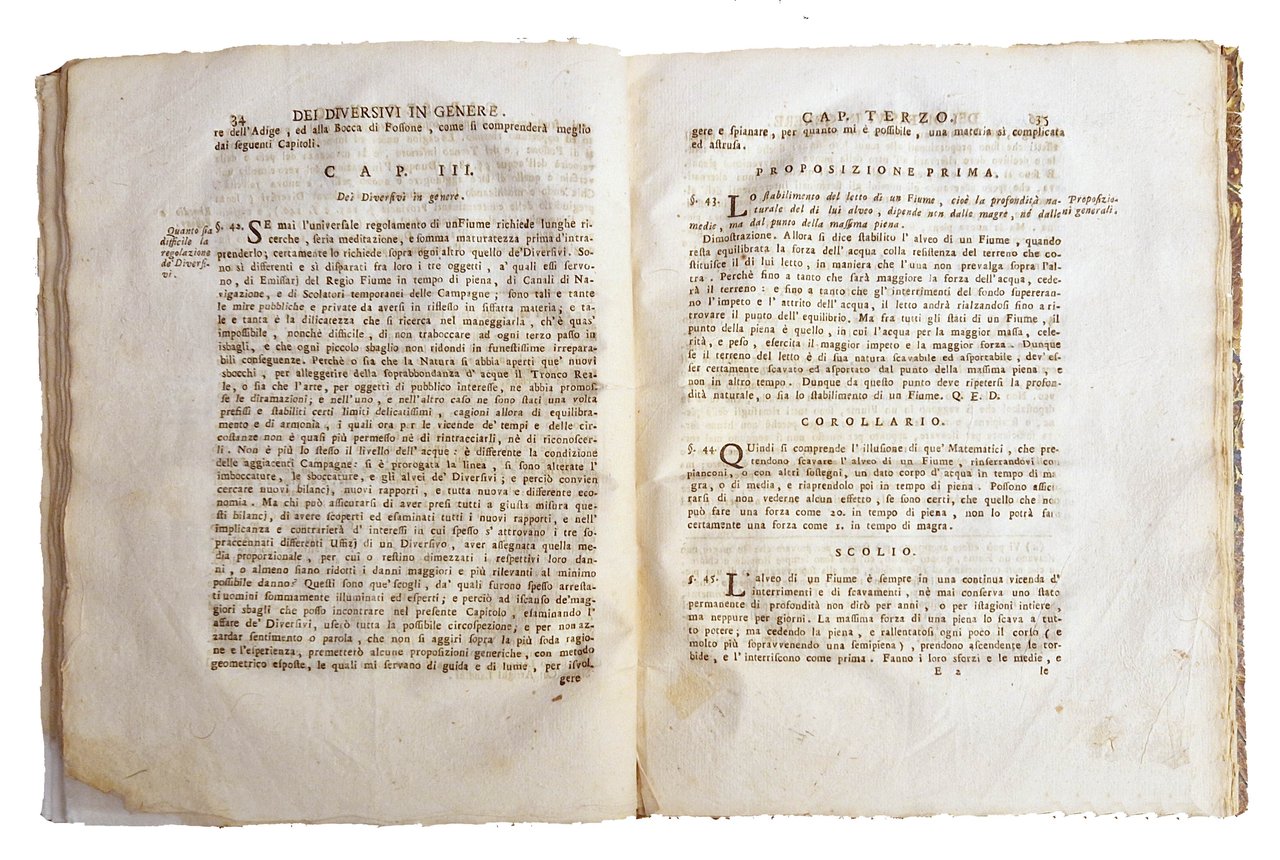 34 DEI DIVERSIVI IN GENERE.
re dell'Adige , ed alla Bocca di Fossone , come si comprenderà meglio
dai seguenti Capitoli.
C A P. III.
Dei Diversivi in genere.
Quanto sia
difficile la
regolazione
de' Diversi-
vi.
§. 42. SE mai l'universale regolamento di un Fiume richiede lunghe ri-
cerche , seria meditazione , e somma maturatezza prima d'intra-
prenderlo; certamente lo richiede sopra ogni altro quello de'Diversivi. So-
no sì differenti e sì disparati fra loro i tre oggetti , a' quali essi servo-
no , di Emissarj del Regio Fiume in tempo di piena, di Canali di Na-
vigazione, e di Scolatori temporanei delle Campagne ; sono tali e tante
le mire pubbliche e private da aversi in riflesso in siffatta materia; e ta-
le e tanta è la dilicatezza che si ricerca nel maneggiarla , ch'è quas'
impossibile , nonchè difficile , di non traboccare ad ogni terzo passo in
isbagli, e che ogni piccolo sbaglio non ridondi in funestissime irrepara-
bili conseguenze. Perchè o sia che la Natura si abbia aperti que' nuovi
sbocchi , per alleggerire della soprabbondanza d' acque il Tronco Rea-
le, o sia che l'arte, per oggetti di pubblico interesse, ne abbia promos-
se le diramazioni; e nell'uno , e nell'altro caso ne sono stati una volta
prefissi e stabiliti certi limiti delicatissimi , cagioni allora di equilibra-
mento e di armonia , i quali ora per le vicende de' tempi e delle cir-
costanze non è quasi più permesso nè di rintracciarli, nè di riconoscer-
li . Non è più lo stesso il livello dell' acque : è differente la condizione
delle aggiacenti Campagne: si è prorogata la linea , si sono alterate l'
imboccature, le sboccature, e gli alvei de' Diversivi ; e perciò convien
cercare nuovi bilancj, nuovi rapporti , e tutta nuova e differente eco-
nomia . Ma chi può assicurarsi di aver presi tutti a giusta misura que-
sti bilancj, di avere scoperti ed esaminati tutti i nuovi rapporti, e nell'
implicanza e contrarietà d' interessi in cui spesso s' attrovano i tre so-
praccennati differenti Uffizj di un Diversivo , aver assegnata quella me-
dia proporzionale , per cui o restino dimezzati i respettivi loro dan-
ni , o almeno siano ridotti i danni maggiori e più rilevanti al minimo
possibile danno? Questi sono que'scogli , da' quali furono spesso arresta-
ti uomini sommamente illuminati ed esperti ; e perciò ad iscanso de'mag-
giori sbagli che posso incontrare nel presente Capitolo , esaminando l'
affare de' Diversivi, userò tutta la possibile circospezione, e per non az-
zardar sentimento o parola , che non si aggiri sopra la più soda ragio-
ne e l'esperienza , premetterò alcune proposizioni generiche , con metodo
geometrico esposte, le quali mi servano di guida e di lume , per isvol-
gere
CAP. TERZO. 35
gere e spianare , per quanto mi è possibile , una materia sì complicata
ed astrusa.
PROPOSIZIONE PRIMA.
§. 43. LO stabilimento del letto di un Fiume , cioè la profondità na-
turale del di lui alveo , dipende non dalle magre, nè dalle
medie , ma dal punto della massima piena .
Proposizio-
ni generali.
Dimostrazione. Allora si dice stabilito l' alveo di un Fiume , quando
resta equilibrata la forza dell' acqua colla resistenza del terreno che co-
stituisce il di lui letto , in maniera che l'una non prevalga sopra l'al-
tra . Perchè fino a tanto che sarà maggiore la forza dell'acqua, cede-
rà il terreno : e fino a tanto che gl' interrimenti del fondo supereran-
no l'impeto e l' attrito dell' acqua, il letto andrà rialzandosi fino a ri-
trovare il punto dell' equilibrio. Ma fra tutti gli stati di un Fiume , il
punto della piena è quello , in cui l'acqua per la maggior massa, cele-
rità , e peso , esercita il maggior impeto e la maggior forza . Dunque
se il terreno del letto è di sua natura scavabile ed asportabile , dev' es-
ser certamente scavato ed asportato dal punto della massima piena , e
non in altro tempo . Dunque da questo punto deve ripetersi la profon-
dità naturale, o sia lo stabilimento di un Fiume. Q. E. D.
COROLLARIO.
§. 44. QUindi si comprende l' illusione di que' Matematici , che pre-
tendono scavare l' alveo di un Fiume , rinserrandovi co'
pianconi, o con altri sostegni, un dato corpo d'acqua in tempo di ma
gra, o di media, e riaprendolo poi in tempo di piena . Possono assicu
rarsi di non vederne alcun effetto , se sono certi, che quello che no
può fare una forza come 20. in tempo di piena , non lo potrà far
certamente una forza come 1. in tempo di magra.
SCOLIO.
§. 45. L' alveo di un Fiume è sempre in una continua vicenda d'
interrimenti e di scavamenti , nè mai conserva uno stato
permanente di profondità non dirò per anni , o per istagioni intiere ,
ma neppure per giorni. La massima forza di una piena lo scava a tut-
to potere; ma cedendo la piena , e rallentatosi ogni poco il corso ( e
molto più sopravvenendo una semipiena ) , prendono ascendente le tor-
bide , e l' interriscono come prima . Fanno i loro sforzi e le medie , e
E 2 le